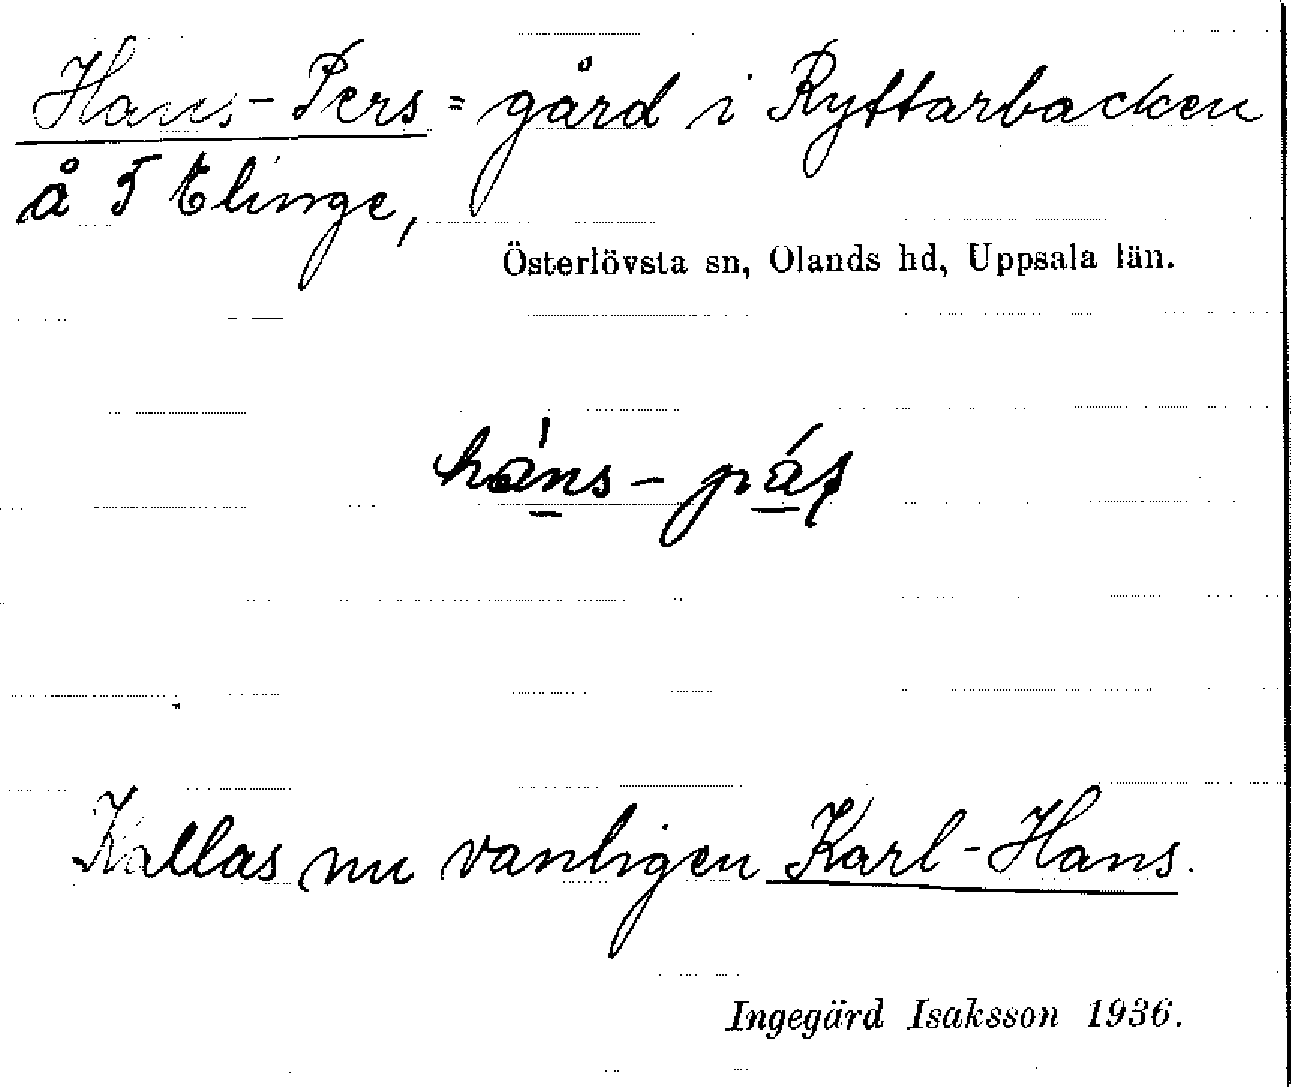 Hans-Pers = gård i Ryttarbacken
å 5 Elinge,
Österlövsta sn, Olands hd, Uppsala län.
háns-
Kallas nu vanligen Karl-Hans.
Ingegärd Isaksson 1936.